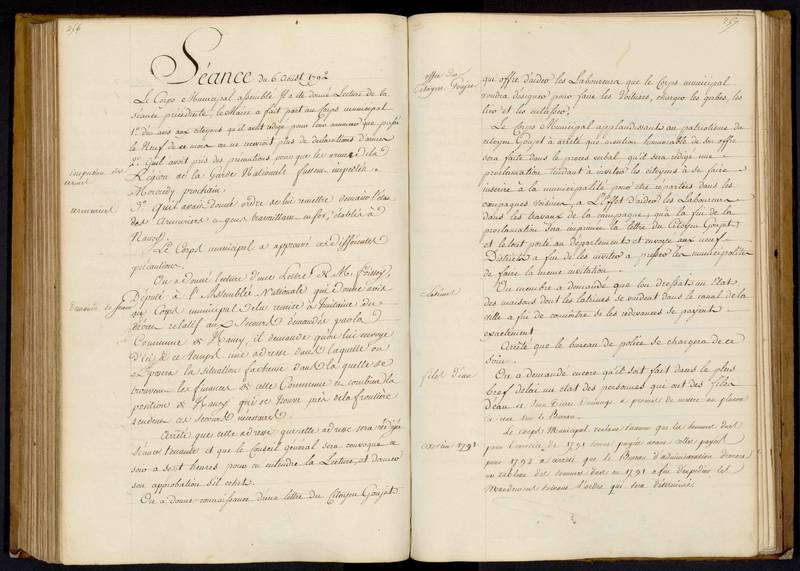 256
Séance du 6 aoust 1792
Le Corps Municipal assemblé Il a été donné Lecture de la
séance précédente, le Maire a fait part au Corps municipal
1° des avis aux citoyens qu'il avait rédigé pour leur annoncer que passé
le Neuf de ce mois on ne recevrait plus de déclarations d'armes
2° Qu'il avait pris des précautions pour que les armes de la
Légion de la Garde Nationale fussent inspectées
Mercredy prochain.
3° Qu'il avait donné ordre de lui remettre demain l'état
des Armuriers et gens travaillant en fer, établis à
Nancy.
Le Corps municipal a approuvé ces différentes
précautions.
On a donné lecture d'une Lettre de M. Foissey,
Député à l'Assemblée Nationale qui donne avis
au Corps municipal de la remise à huitaine du
décret relatif au Secours demandés par la
Commune de Nancy, il demande qu'on lui envoye
d'ici à ce temps une adresse dans laquelle on
exposera la situation facheuse dans laquelle se
trouvent les finances de cette Commune et combien la
position de Nancy qui se trouve près de la frontière
rendent ces secours nécessaires.
Arrêté que cette adresse sera rédigée
séance tenante et que le Conseil général sera convoqué ce
soir a sept heures pour en entendre la Lecture, et donner
son approbation s'il échet.
On a donné connaissance d'une lettre du Citoyen Goujet
inspection des
armes
armuriers
Demande de secours
257
offre du
Citoyen Goujet
qui offre d'aider les Laboureurs que le Corps municipal
voudra désigner pour faire les Voitures, charger les gerbes, les
lier et les entasser,
Le Corps Municipal applaudissant au patriotisme du
citoyen Goujet à arrêté que mention honorable de son offre
sera faite dans le procès verbal, qu'il sera rédigé une
proclamation tendant à inviter les citoyens à se faire
inscrire à la municipalité pour être repartis dans les
campagnes voisines, a L'Effet d'aider les Laboureurs
dans les travaux de la campagne, qu'à la fin de la
proclamation sera imprimée la lettre du Citoyen Goujet
et le tout porté au département et envoyé aux neuf
Districts a fin de les inviter a presser les municipalités
de faire la même invitation.
Latrines
Un membre a demandé que l'on dressât un Etat
des maisons dont les latrines se vuident dans le canal de la
ville a fin de connaître si les redevances se payent
exactement
Arrêté que le bureau de police se chargera de ce
soin.
filets d'eau
On a demandé encore qu'il soit fait dans le plus
bref délai un état des personnes qui ont des filets
d'eau et
sur le Bureau.
Le Corps Municipal
pour l'exercice de 1791
pour 1792 a arrêté que le Bureau d'administration dressera
un tableau des sommes dues en 1791 a fin d'expédier les
Mandements suivant l'ordre qui sera déterminé.
1791